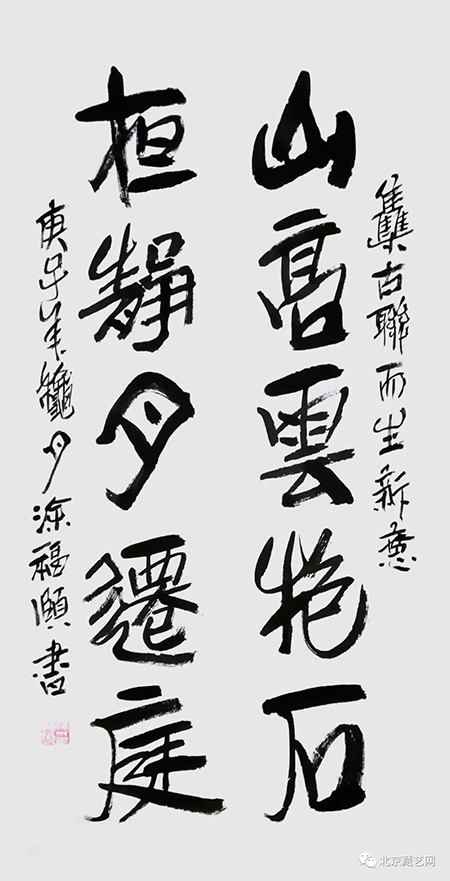 雧古聯而生新意
山高雲抱石
靜月遷庭
庚子年龝月涂福書
北京藏艺网